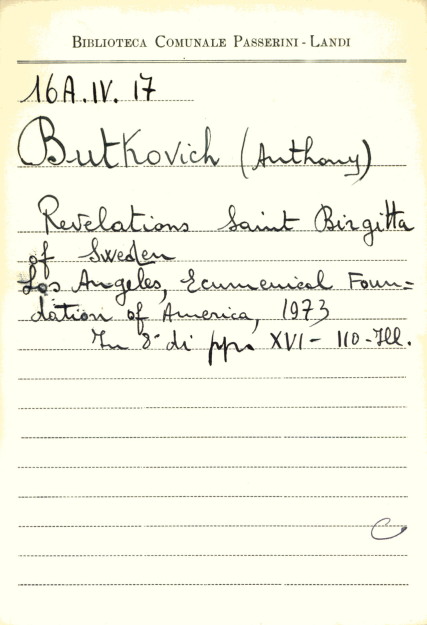 BIBLIOTECA COMUNALE PASSERINI - LANDI
16A.IV. 17
Butkovich (Anthony)
Revelations Saint Birgitta
of Sweden
Los Angeles, Ecumenical Foun=
dation of America, 1973
In 8° di pp. XVI - 110 - Ill.